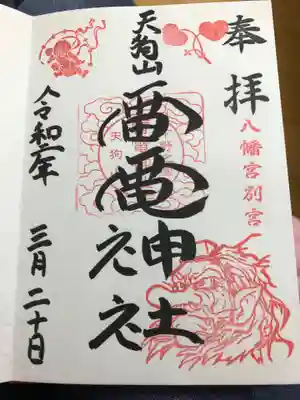 奉拝
八幡宮別宮
天狗山
雷電神社
天狗
令和二年
三月二十日